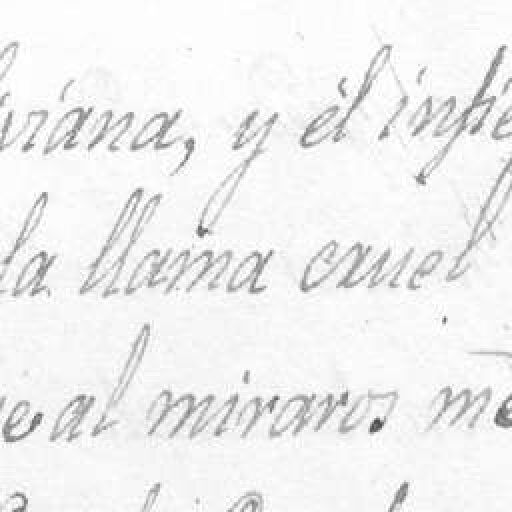 viana, y él infie
la llama cruel
e al miraros me